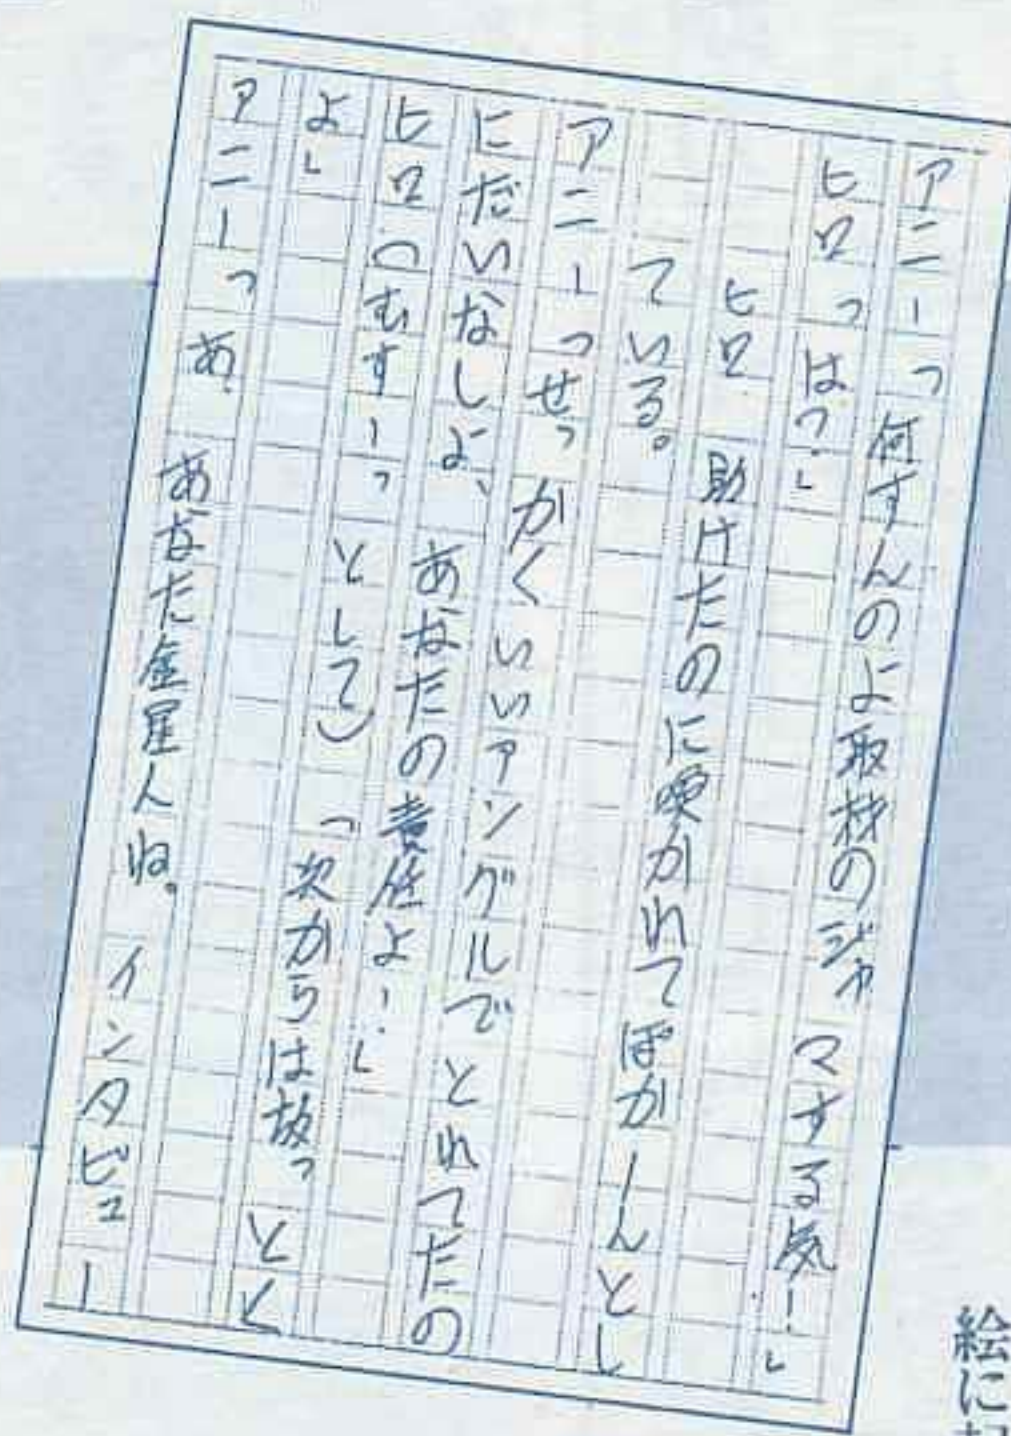 アニー「何すんのよ取材のジャマする気!」
ヒロ「は?」
ヒロ 助けたのに喚かれてぽかーんとし
ている。
アニー「せっかくいいアングルでとれてたの
にだいなしよ、あなたの責任よ!」
ヒロ(むすーっとして)「次からは放っとく
よ」
アニー「あ、あなた金星人ね。インタビュー
絵に